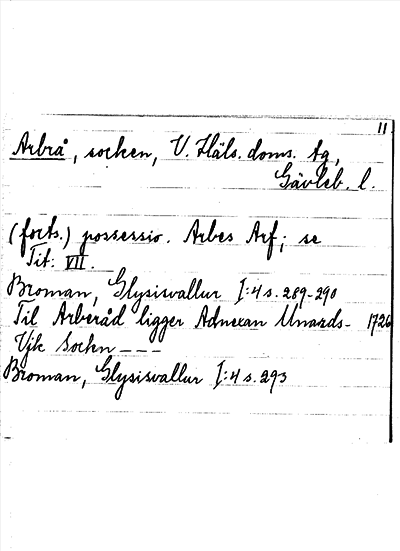 11
Arbrå, socken, V. Häls. doms. tg,
Gävleb. l.
(forts.) possessio. Arbes Arf; se
Tit: VII.
Broman, Glysisvallur I:4 s. 289-290
Til Arberåd ligger Adnexan Unazds- 1726
Vjk Sockn ---
Broman, Glysisvallur I:4 s. 293